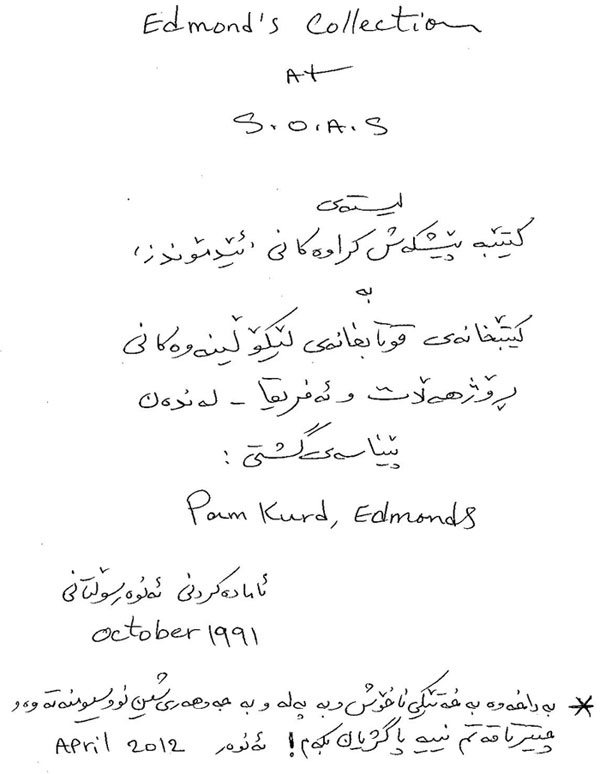 Edmond's Collection
At
S.O.A.S
لیستەی
کتێبە پێشکەش کراوەکانی 'ئێدمۆندز'
بە
کتێبخانەی قوتابخانەی لێکۆڵینەوەکانی
ڕۆژهەڵات و ئەفریقیا - لەندەن
پێناسەی گشتی :
Pam Kurd, Edmonds
ئامادەکردنی ئەنوەر سوڵتانی
October 1991
* بەداخەوە بە خەتێکی ناخۆش و بە پەلە و بە جەوهەری شین نووسیومنەتەوە و
چیتر تاقەتم نییە پاکژیان بکەم! ئەنوەر April 2012